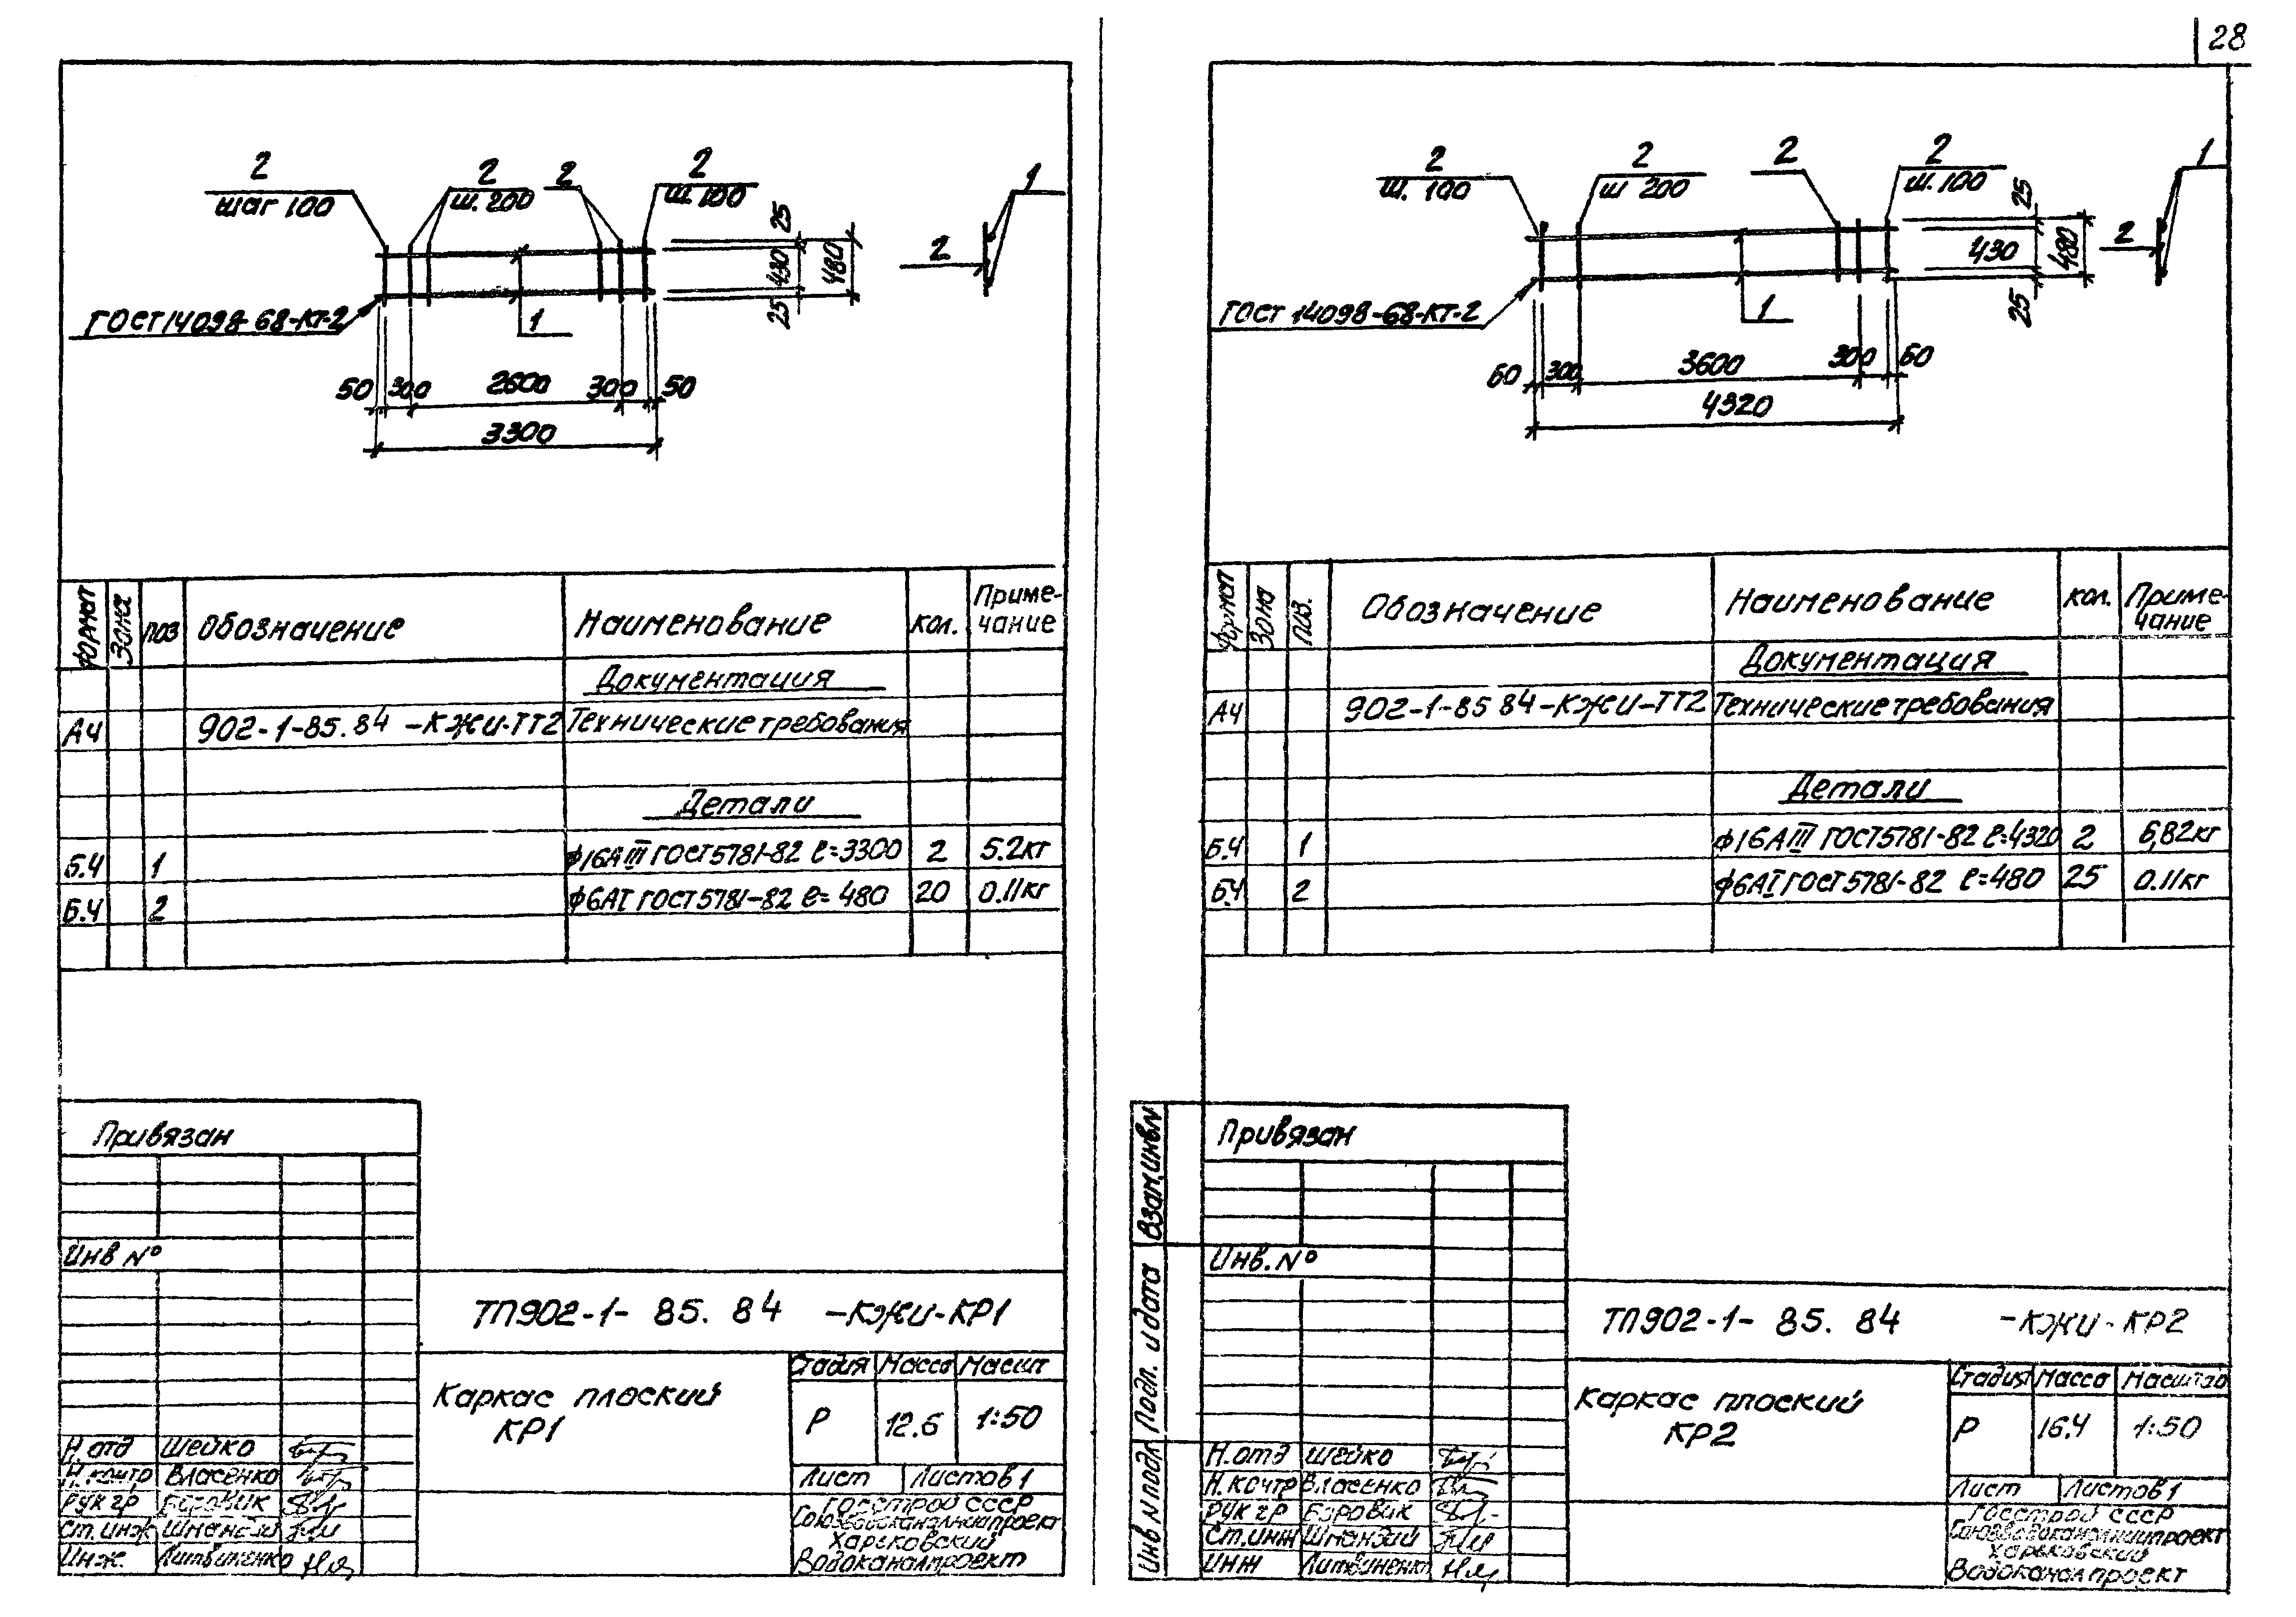 28
2
шаг 100
2
ш. 200
2
2
ш. 100
1
2
25
430
480
25
ГОСТ 14098-68-КТ-2
1
50 300 2600 300 50
3300
Формат Зона Поз Обозначение Наименование Кол. Приме-
чание
Документация
А4 902-1-85.84 -КЖИ-ТТ2 Технические требования
Детали
Б.Ч 1 ф16АIII ГОСТ5781-82 l=3300 2 5.2кг
Б.Ч 2 ф6АI ГОСТ5781-82 l= 480 20 0.11кг
Привязан
Инв №
ТП902-1- 85. 84 -КЖИ-КР1
Каркас плоский
КР1
Стадия Масса Масшт
Р 12.6 1:50
Лист Листов 1
Н.отд Шейко
Н.контр Власенко
Рук гр Боровик
Ст.инж
Инж. Литвиненко
Госстрой СССР
Союзводоканалниипроект
Харьковский
Водоканалпроект
2
ш. 100
2
ш 200
2
2
ш. 100
1
2
25
430
480
25
ГОСТ 14098-68-КТ-2
1
60 300 3600 300 60
4320
Формат Зона Поз. Обозначение Наименование Кол. Приме-
чание
Документация
А4 902-1-85 84-КЖИ-ТТ2 Технические требования
Детали
Б.Ч 1 ф16АIII ГОСТ5781-82 l=4320 2 6,82кг
Б.Ч 2 ф6АI ГОСТ5781-82 l=480 25 0.11кг
Взам.инв.N
Подп. и дата
Инв N подл
Привязан
Инв. №
ТП902-1- 85. 84 -КЖИ-КР2
Каркас плоский
КР2
Стадия Масса Масштаб
Р 16.4 1:50
Лист Листов 1
Н.отд Шейко
Н.контр Власенко
Рук гр Боровик
Ст.инж
Инж Литвиненко
Госстрой СССР
Союзводоканалниипроект
Харьковский
Водоканалпроект